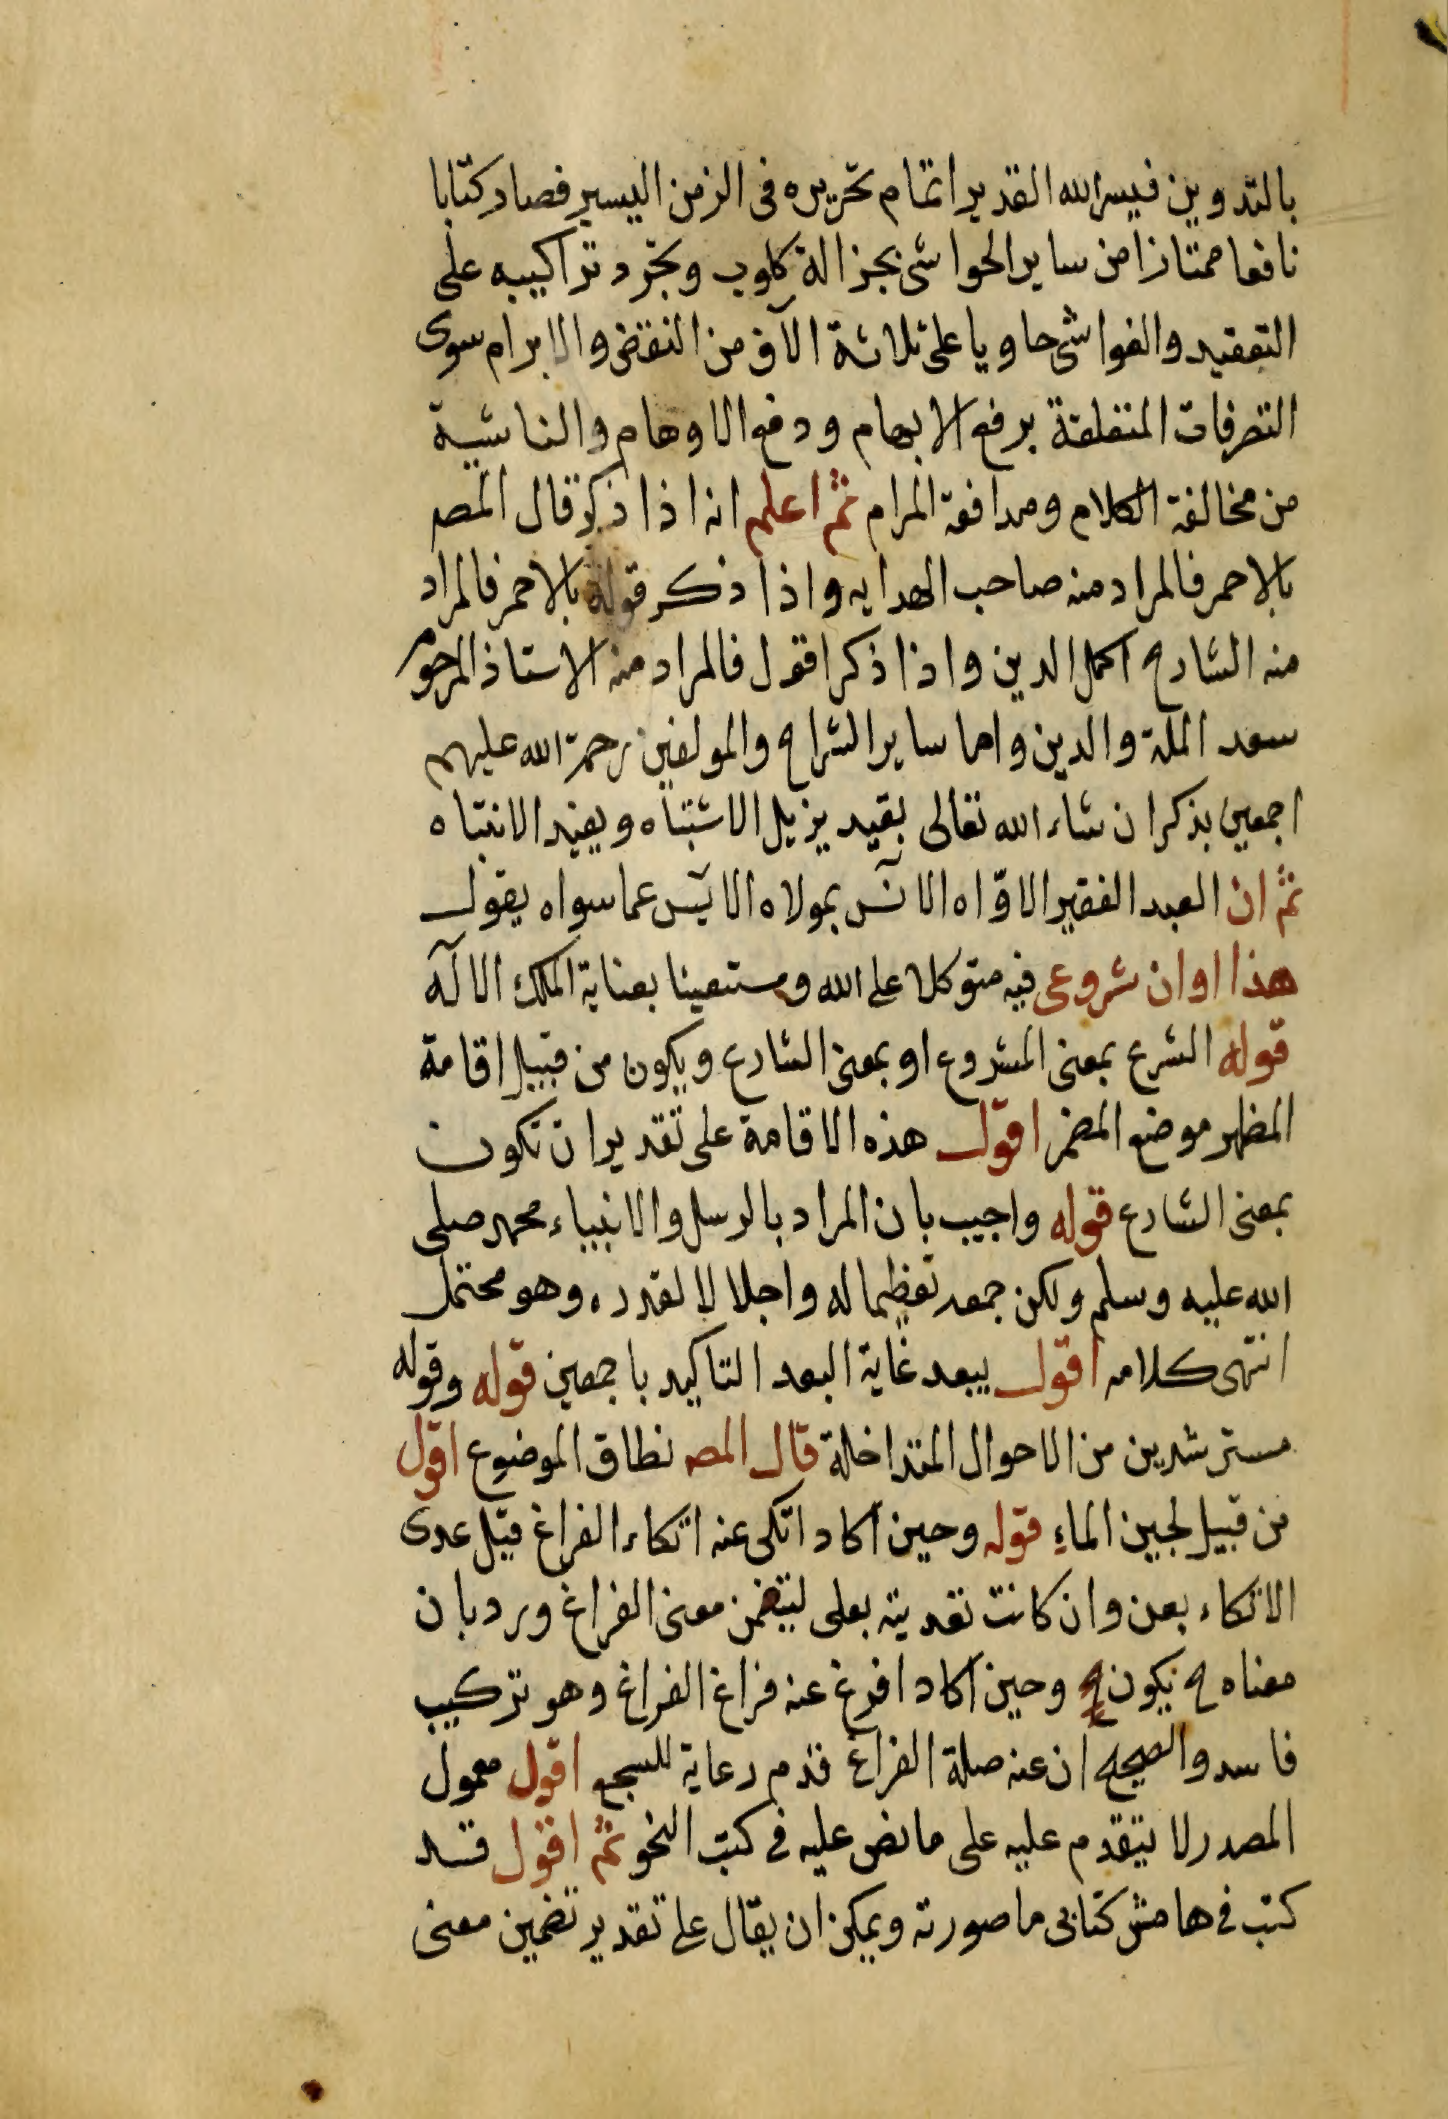 بالتدوين فيسر الله القدير اتمام تحريره فى الزمن اليسير فصار كتابا
نافعا ممتازا من ساير الحواشى بجزالة كلوب وتجرد تراكيبه على
التعقيد والغواشى حاويا على ثلاثة الآف من النقض والابرام سوى
التصرفات المتعلقة برفع الابهام ودفع الاوهام والناشية
من مخالفة الكلام ومدافعة المرام ثم اعلم انه اذا ذكر قال المصـ
بالاحمر فالمراد منه صاحب الهدايه واذا ذكر قوله بالاحمر فالمراد
منه الشارح اكمل الدين واذا ذكر اقول فالمراد منه الاستاذ المرحوم
سعد الملة والدين واما ساير الشراح والمولفين رحمة الله عليهم
اجمعين بذكر ان شاء الله تعالى بقيد يزيل الاشتباه ويفيد الانتباه
ثم ان العبد الفقير الاوّاه الآنس بمولاه الآيس عما سواه يقول
هذا اوان شروعى فيه متوكلا على الله ومستعينا بعناية الملك الاله
قوله الشرع بمعنى المشروع او بمعنى الشارع ويكون من قبيل اقامة
المظهر موضع المضمر اقول هذه الاقامة على تقدير ان تكون
بمعنى الشارع قوله واجيب بان المراد بالرسل والانبياء محمد صلى
الله عليه وسلم ولكن جمعه تعظيما له واجلالا لقدره وهو محتمل
انتهى كلامه اقول يبعد غاية البعد التاكيد باجمعين قوله وقوله
مسترشدين من الاحوال المتداخلة قال المصـ نطاق الموضوع اقول
من قبيل لجين الماءِ قوله وحين اكاد اتكى عنه اتكاء الفراغ قيل عدى
الاتكاء بعن وان كانت تعديته بعلى ليتضمن معنى الفراغ ورد بان
معناه ح يكون وحين اكاد افرغ عنه فراغ الفراغ وهو تركيب
فاسد والصحيح ان عنه صلة الفراغ قدم رعاية للسجع اقول معمول
المصدر لا يتقدم عليه على ما نص عليه فى كتب النحو ثم اقول قد
كتب فى هامش كتابى ما صورته ويمكن ان يقال على تقدير تضمين معنى